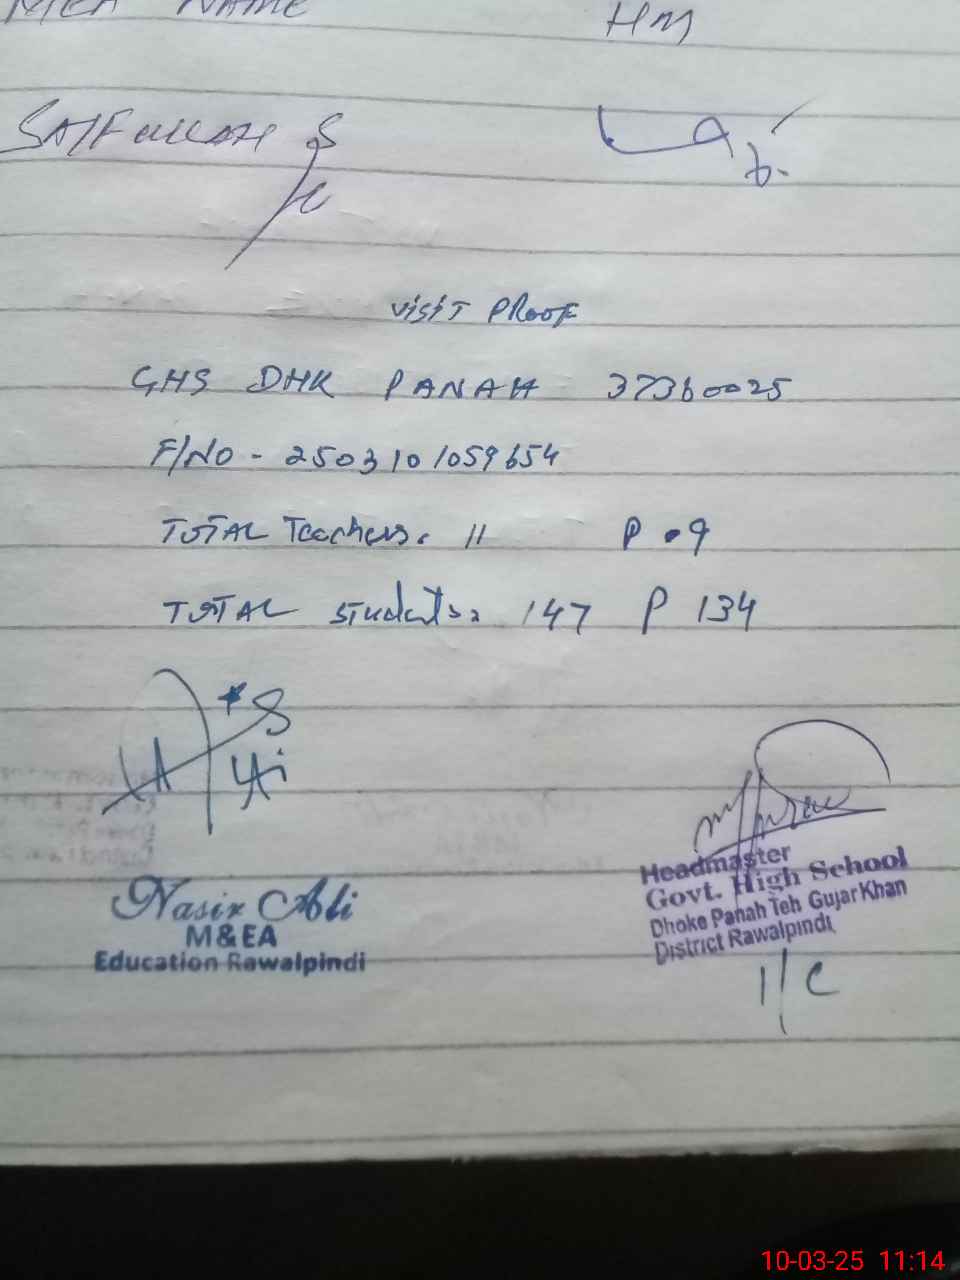 MEA NAME HM
SAIFULLAH S
VISIT PROOF
GHS DHK PANAH 37360025
F/NO - 2503101059654
TOTAL Teachers. 11 P . 9
TOTAL Students: 147 P 134
Nasir Ali
M&EA
Education Rawalpindi
Headmaster
Govt. High School
Dhoke Panah Teh Gujar Khan
District Rawalpindi
I/C
10-03-25 11:14